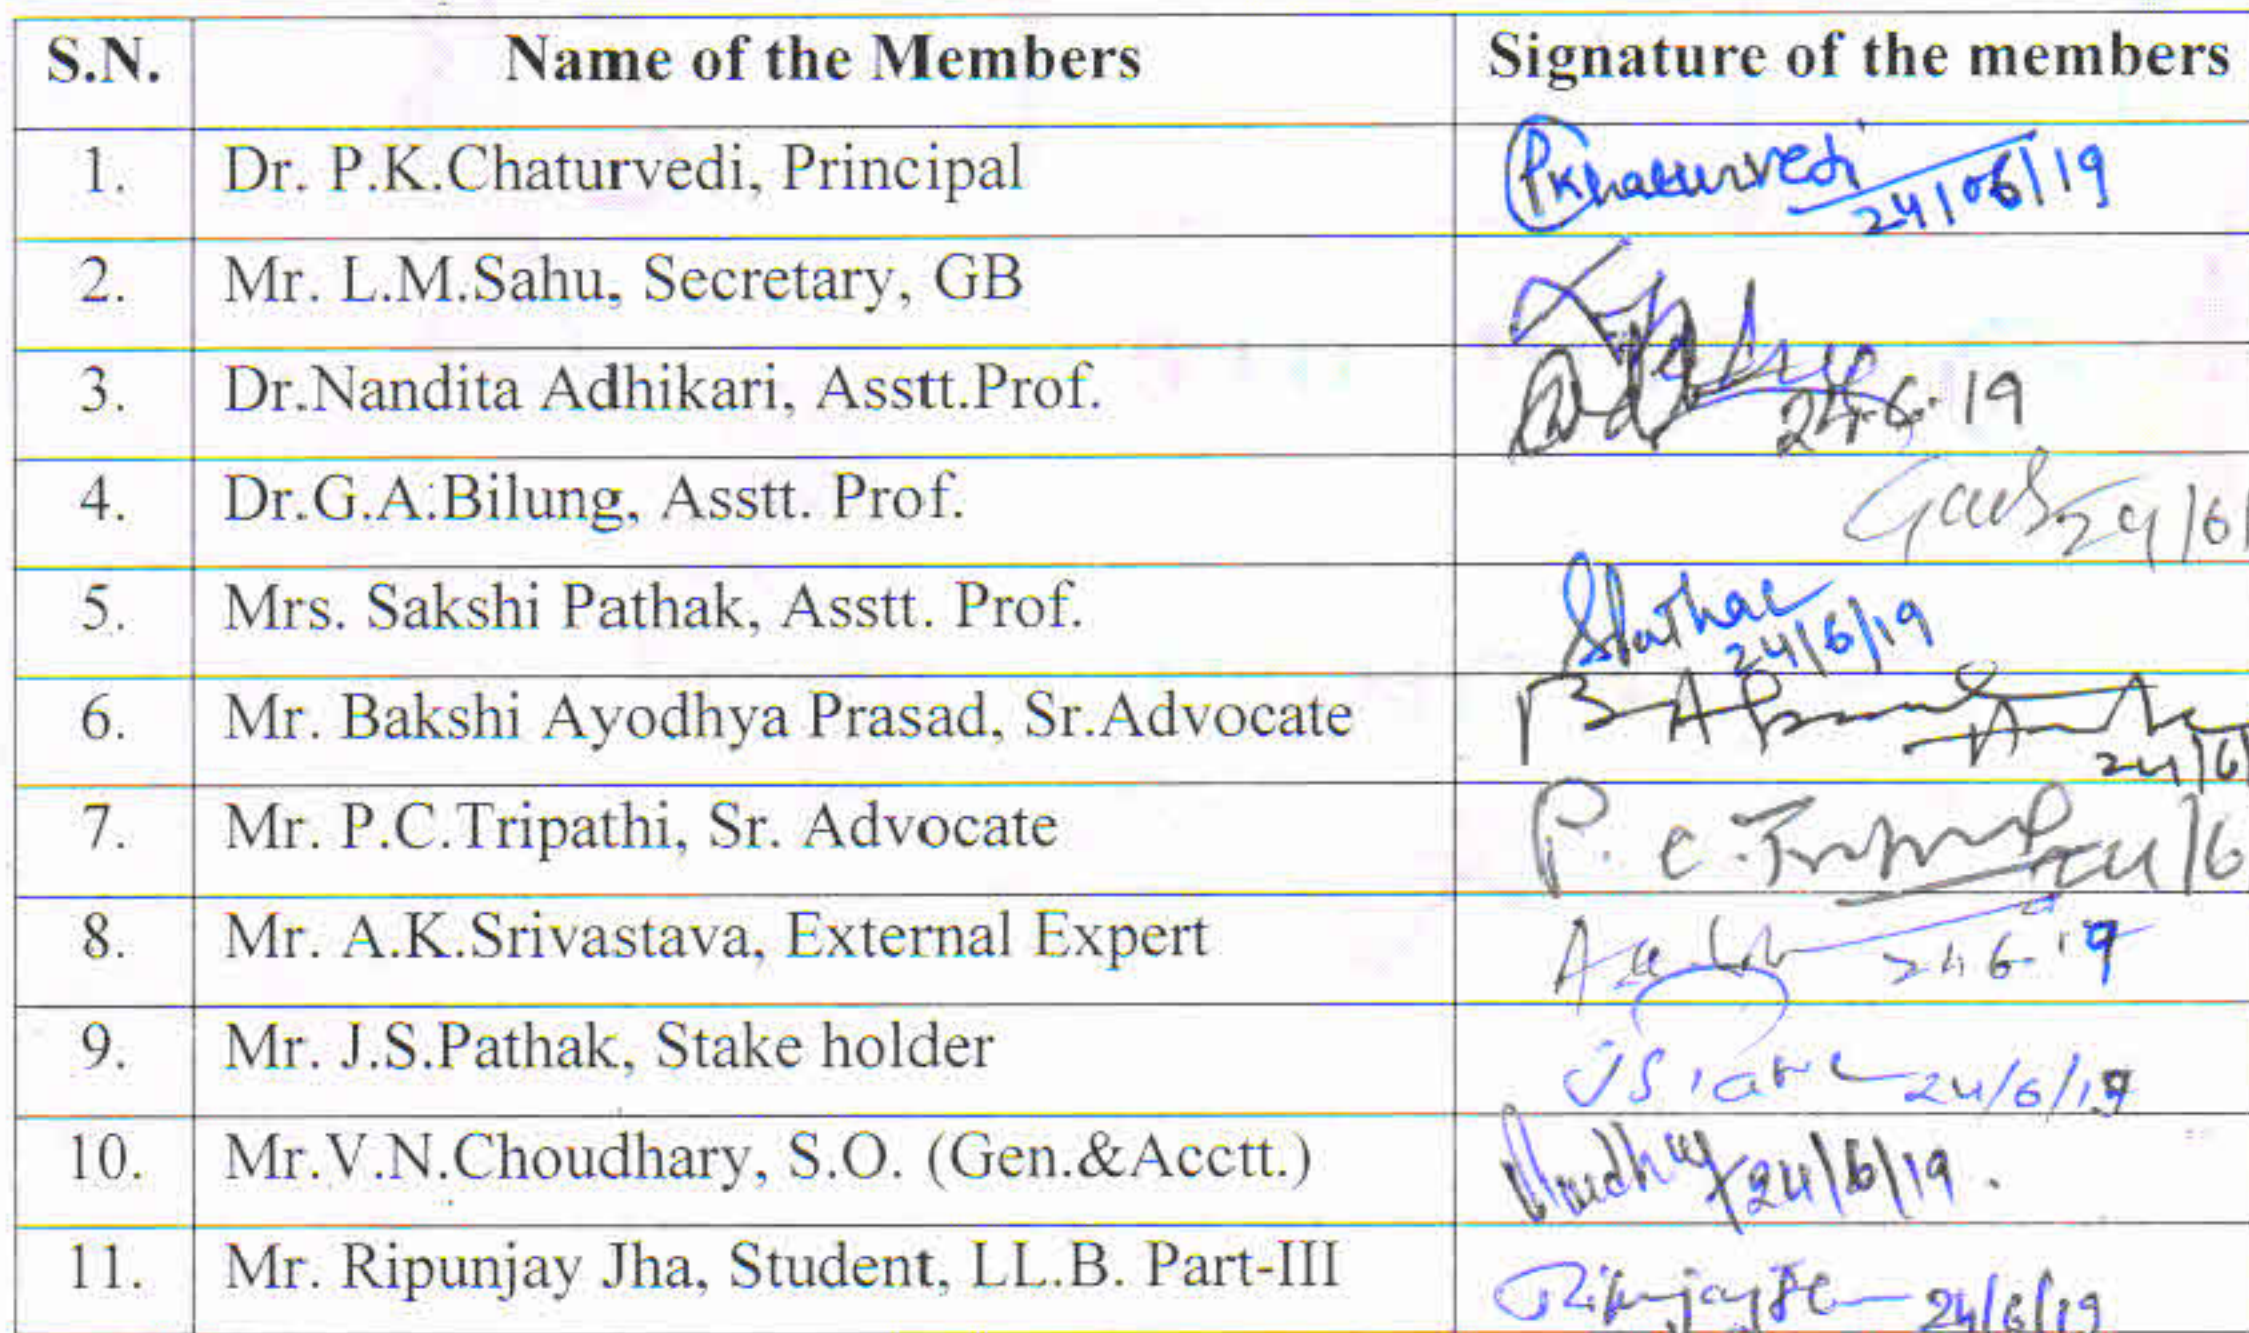 S.N. Name of the Members Signature of the members
1. Dr. P.K.Chaturvedi, Principal PKChaturvedi 24/06/19
2. Mr. L.M.Sahu, Secretary, GB
3. Dr.Nandita Adhikari, Asstt.Prof. 24.6.19
4. Dr.G.A.Bilung, Asstt. Prof. 24/6/
5. Mrs. Sakshi Pathak, Asstt. Prof. SPathak 24/6/19
6. Mr. Bakshi Ayodhya Prasad, Sr.Advocate 24/6/
7. Mr. P.C.Tripathi, Sr. Advocate P.C. Tripathi 24/6
8. Mr. A.K.Srivastava, External Expert 24.6.19
9. Mr. J.S.Pathak, Stake holder 24/6/19
10. Mr.V.N.Choudhary, S.O. (Gen.&Acctt.) 24/6/19.
11. Mr. Ripunjay Jha, Student, LL.B. Part-III Ripunjay Jha 24/6/19